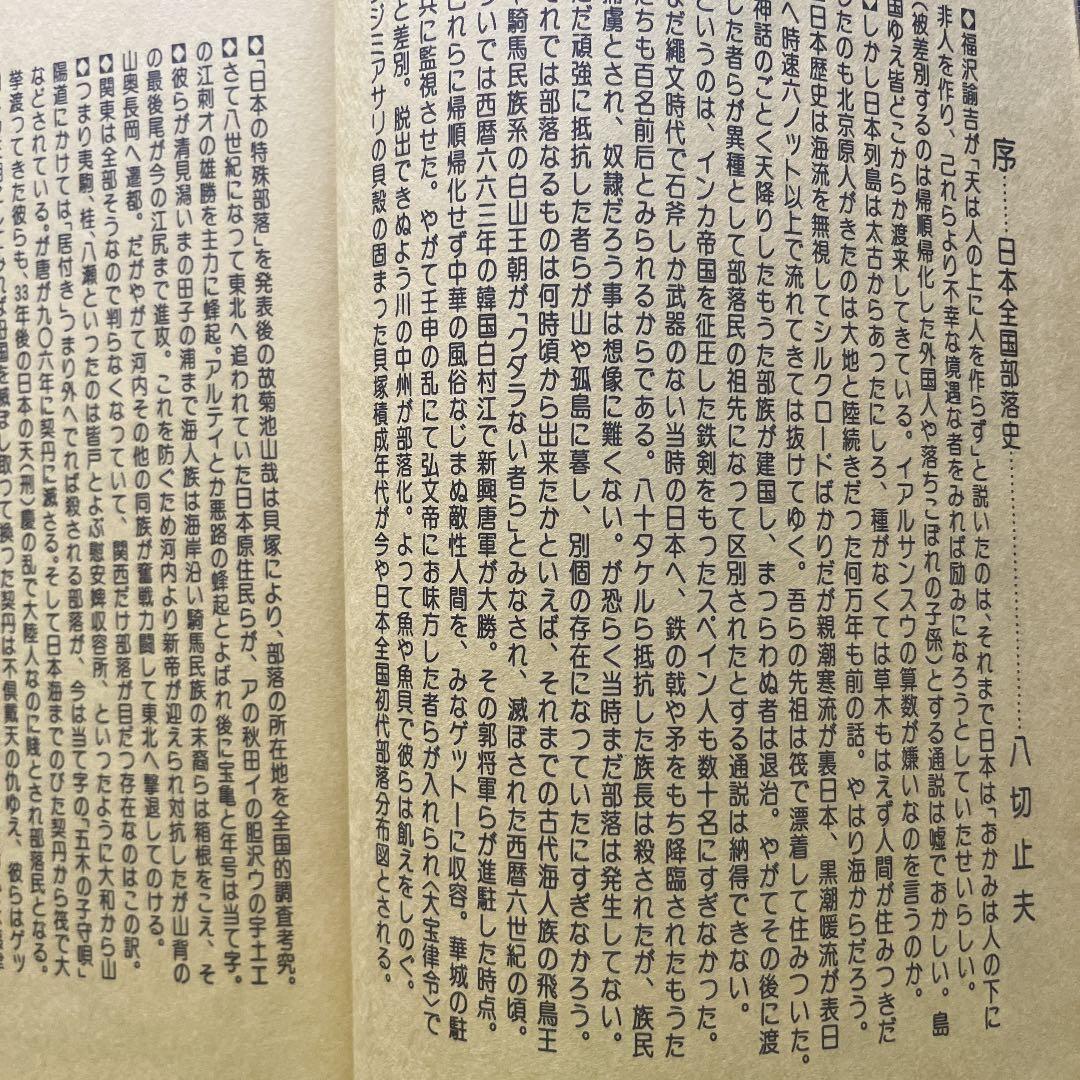 序……日本全国部落史……………………八切止夫
◆福沢諭吉が「天は人の上に人を作らず」と説いたのは、それまで日本は「おかみは人の下に
非人を作り、己れらより不幸な境遇な者をみれば励みになろうとしていたせいらしい。
〈被差別するのは帰順帰化した外国人や落ちこぼれの子係〉とする通説は嘘でおかしい。島
国ゆえ皆どこからか渡来してきている。イアルサンスウの算数が嫌いなのを言うのか。
◆しかし日本列島は太古からあつたにしろ、種がなくては草木もはえず人間が住みつきだ
したのも北京原人がきたのは大地と陸続きだつた何万年も前の話。やはり海からだろう。
日本歴史は海流を無視してシルクロードばかりだが親潮寒流が裏日本、黒潮暖流が表日
へ時速六ノット以上で流れてきては抜けてゆく。吾らの先祖は筏で漂着して住みついた。
神話のごとく天降りしたもうた部族が建国し、まつらわぬ者は退治。やがてその後に渡
した者らが異種として部落民の祖先になつて区別されたとする通説は納得できない。
というのは、インカ帝国を征圧した鉄剣をもつたスペイン人も数十名にすぎなかつた。
まだ縄文時代で石斧しか武器のない当時の日本へ、鉄の戟や矛をもち降臨されたもうた
たちも百名前后とみられるからである。八十タケルら抵抗した族長は殺されたが、族民
捕虜とされ、奴隷だろう事は想像に難くない。が恐らく当時まだ部落は発生してない。
だ頑強に抵抗した者らが山や孤島に暮し、別個の存在になつていたにすぎなかろう。
それでは部落なるものは何時頃から出来たかといえば、それまでの古代海人族の飛鳥王
や騎馬民族系の白山王朝が「クダラない者ら」とみなされ、滅ぼされた西暦六世紀の頃。
らいでは西暦六六三年の韓国白村江で新興唐軍が大勝。その郭将軍らが進駐した時点。
これらに帰順帰化せず中華の風俗なじまぬ敵性人間を、みなゲットーに収容。華城の駐
共に監視させた。やがて壬申の乱にて弘文帝にお味方した者らが入れられ〈大宝律令〉で
と差別。脱出できぬよう川の中州が部落化。よつて魚や魚貝で彼らは飢えをしのぐ。
ジミアサリの貝殻の固まつた貝塚積成年代が今や日本全国初代部落分布図とされる。
◆「日本の特殊部落」を発表後の故菊池山哉は貝塚により、部落の所在地を全国的調査考究。
◆さて八世紀になつて東北へ追われていた日本原住民らが、アの秋田イの胆沢ウの宇土エ
の江刺オの雄勝を主力に蜂起。アルテイとか悪路の蜂起とよばれ後に宝亀と年号は当て字。
◆彼らが清見潟いまの田子の浦まで海人族は海岸沿い騎馬民族の末裔らは箱根をこえ、そ
の最後尾が今の江尻まで進攻。これを防ぐため河内より新帝が迎えられ対抗したが山背の
山奥長岡へ遷都。だがやがて河内その他の同族が奮戦力闘して東北へ撃退してのける。
◆関東は全部そうなので判らなくなつていて、関西だけ部落が目だつ存在なのはこの訳。
◆つまり夷駒、桂、八瀬といつたのは皆戸とよぶ慰安婢収容所、といつたように大和から山
陽道にかけては、「居付き」つまり外へでれば殺される部落が、今は当て字の「五木の子守唄」
などされている。が唐が九〇六年に契丹に滅さる。そして日本海までのびた契丹から筏で大
挙渡つてきた彼らも、33年後の日本の天〈刑〉慶の乱で大陸人なのに賤とされ部落民となる。
ば母国を滅ぼし取つて換つた契丹は不倶戴天の仇ゆえ、彼らはゲツ